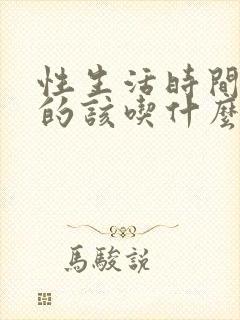 性生活時間
的該喫什麼
馬駿説